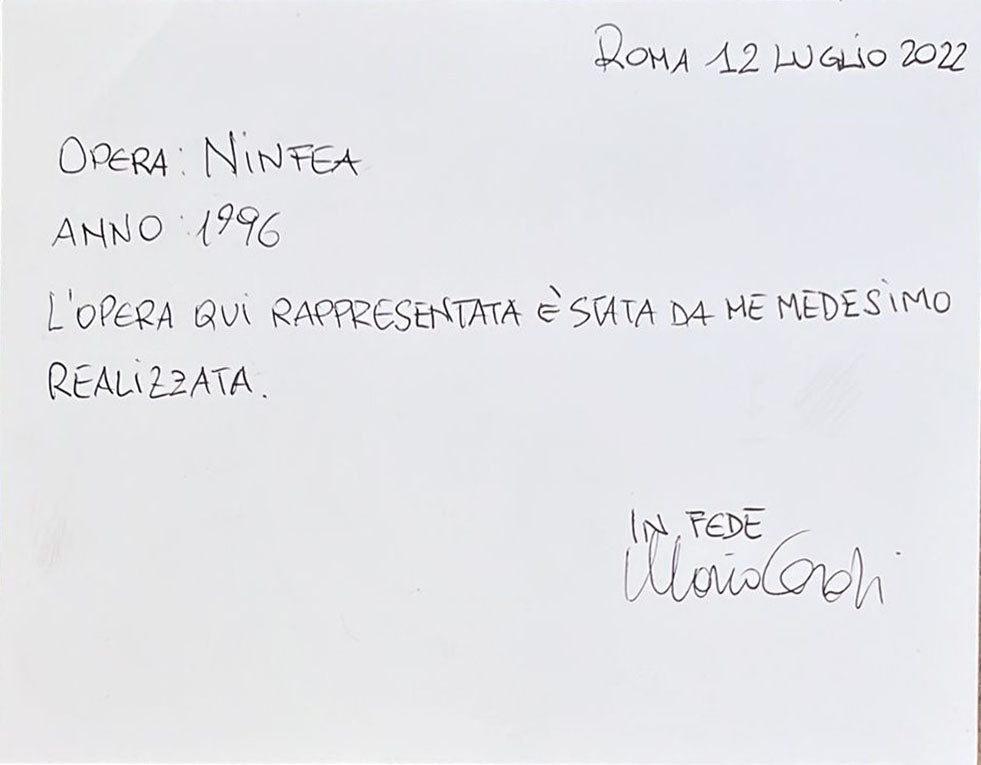 ROMA 12 LUGLIO 2022
OPERA: NINFEA
ANNO: 1996
L'OPERA QUI RAPPRESENTATA È STATA DA ME MEDESIMO
REALIZZATA.
IN FEDE
Mario